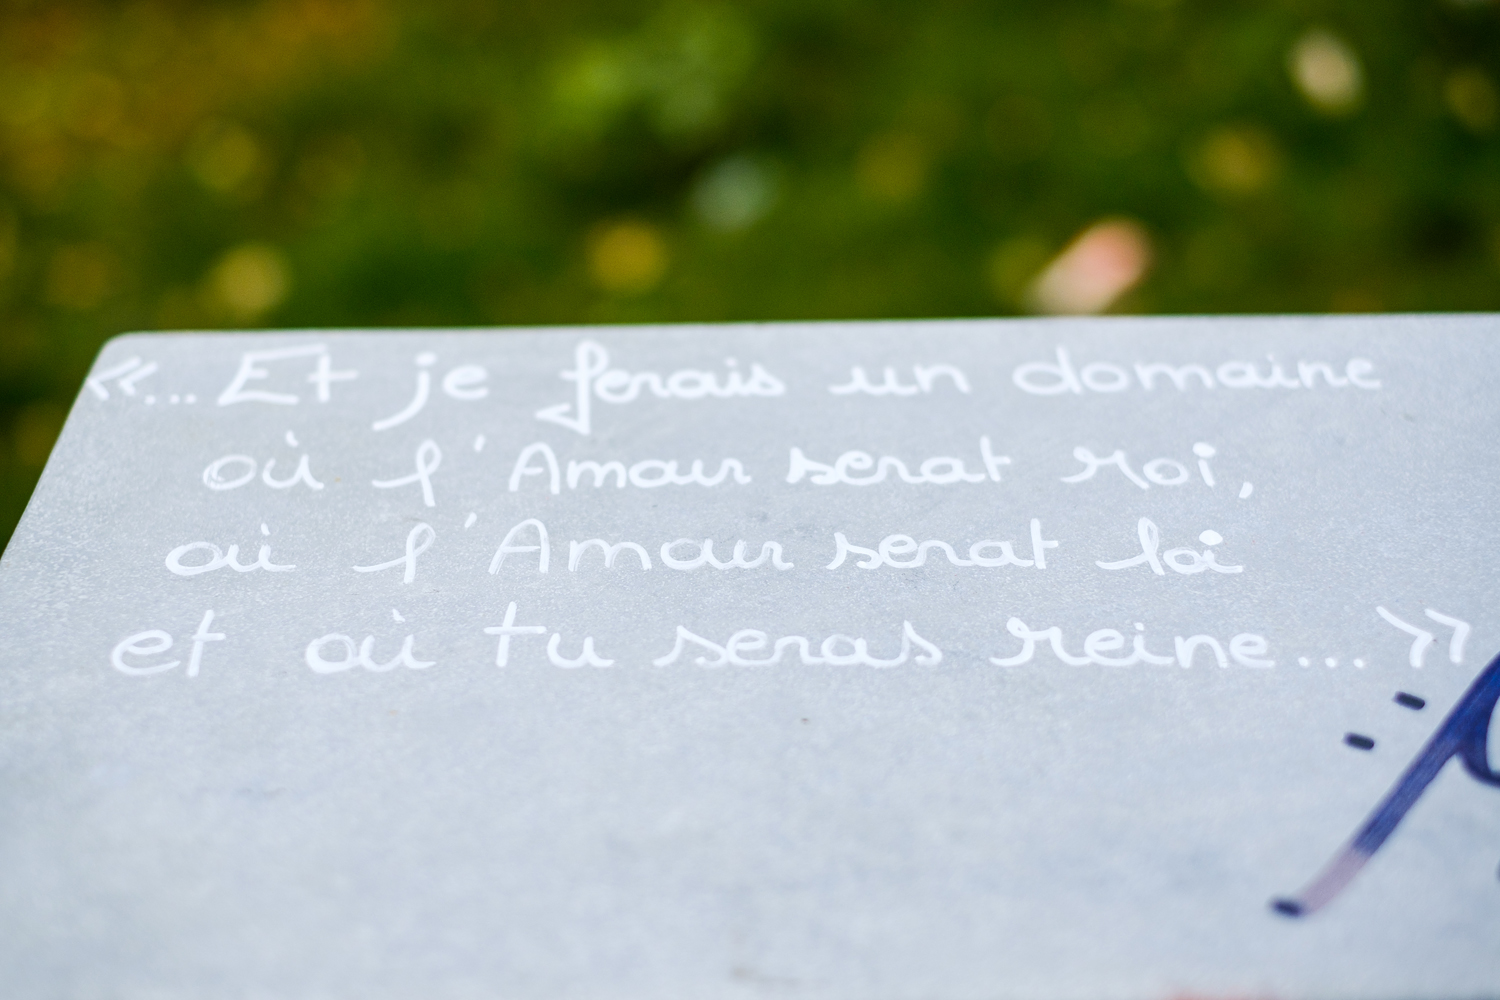 «... Et je ferais un domaine
où l'Amour serat roi,
où l'Amour serat loi
et où tu seras reine... »